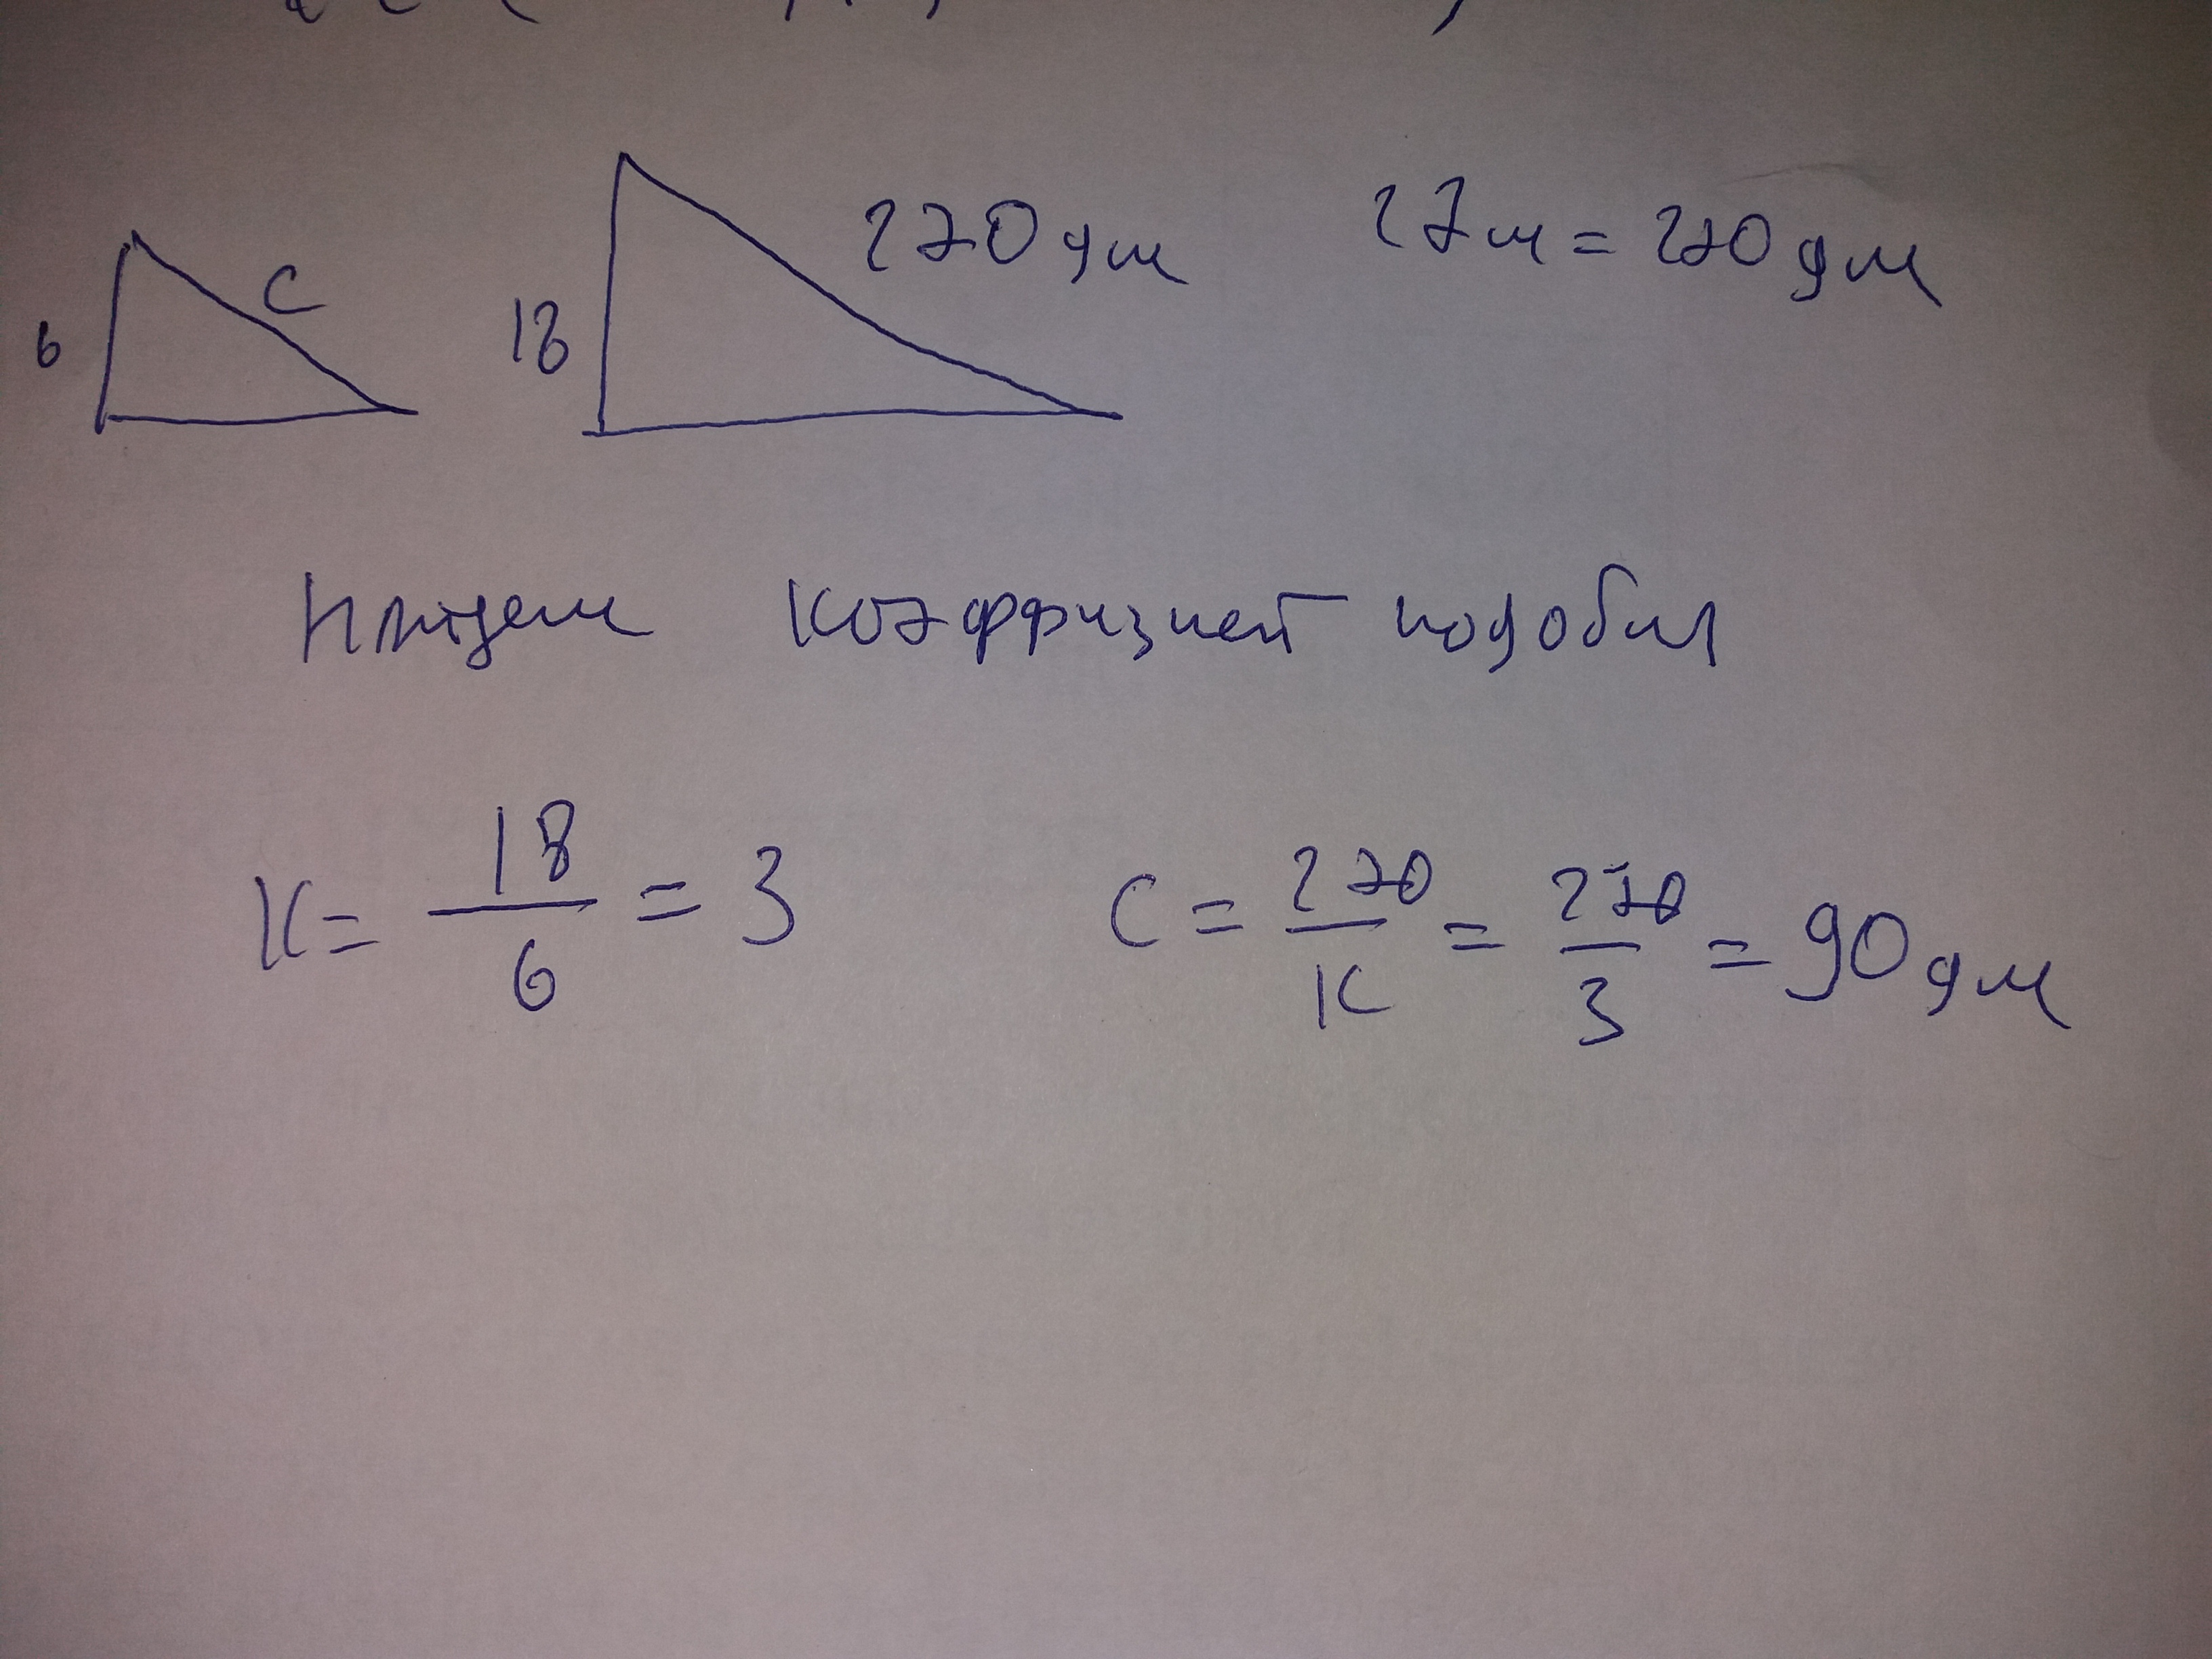 6 с 18 270 дм 27м = 270 дм
Найдем коэффициент подобия
К = 18/6 = 3 с = 270/К = 270/3 = 90 дм